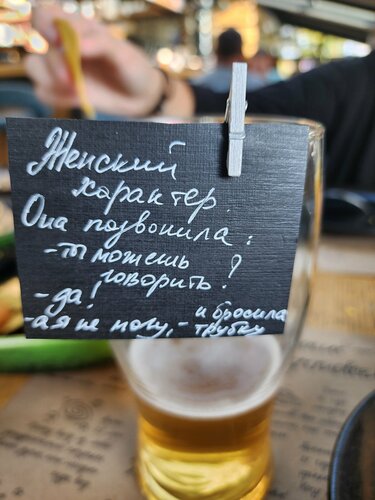 Женский
характер.
Она позвонила:
-ты можешь
говорить?
-да!
-а я не могу,- и бросила
трубку